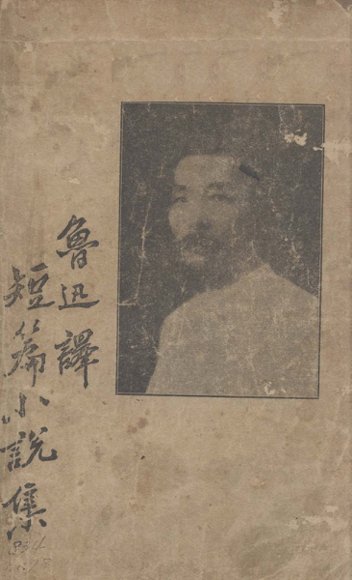 魯迅譯
短篇小説集